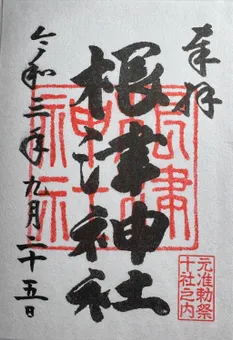 奉拝
根津神社
根津神社
元准勅祭
十社之内
令和三年九月二十五日